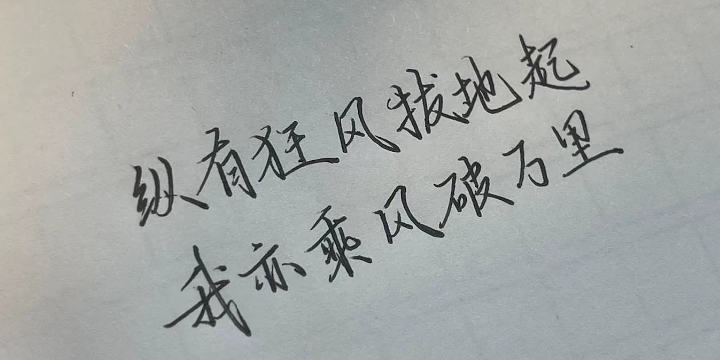 纵有狂风拔地起
我亦乘风破万里